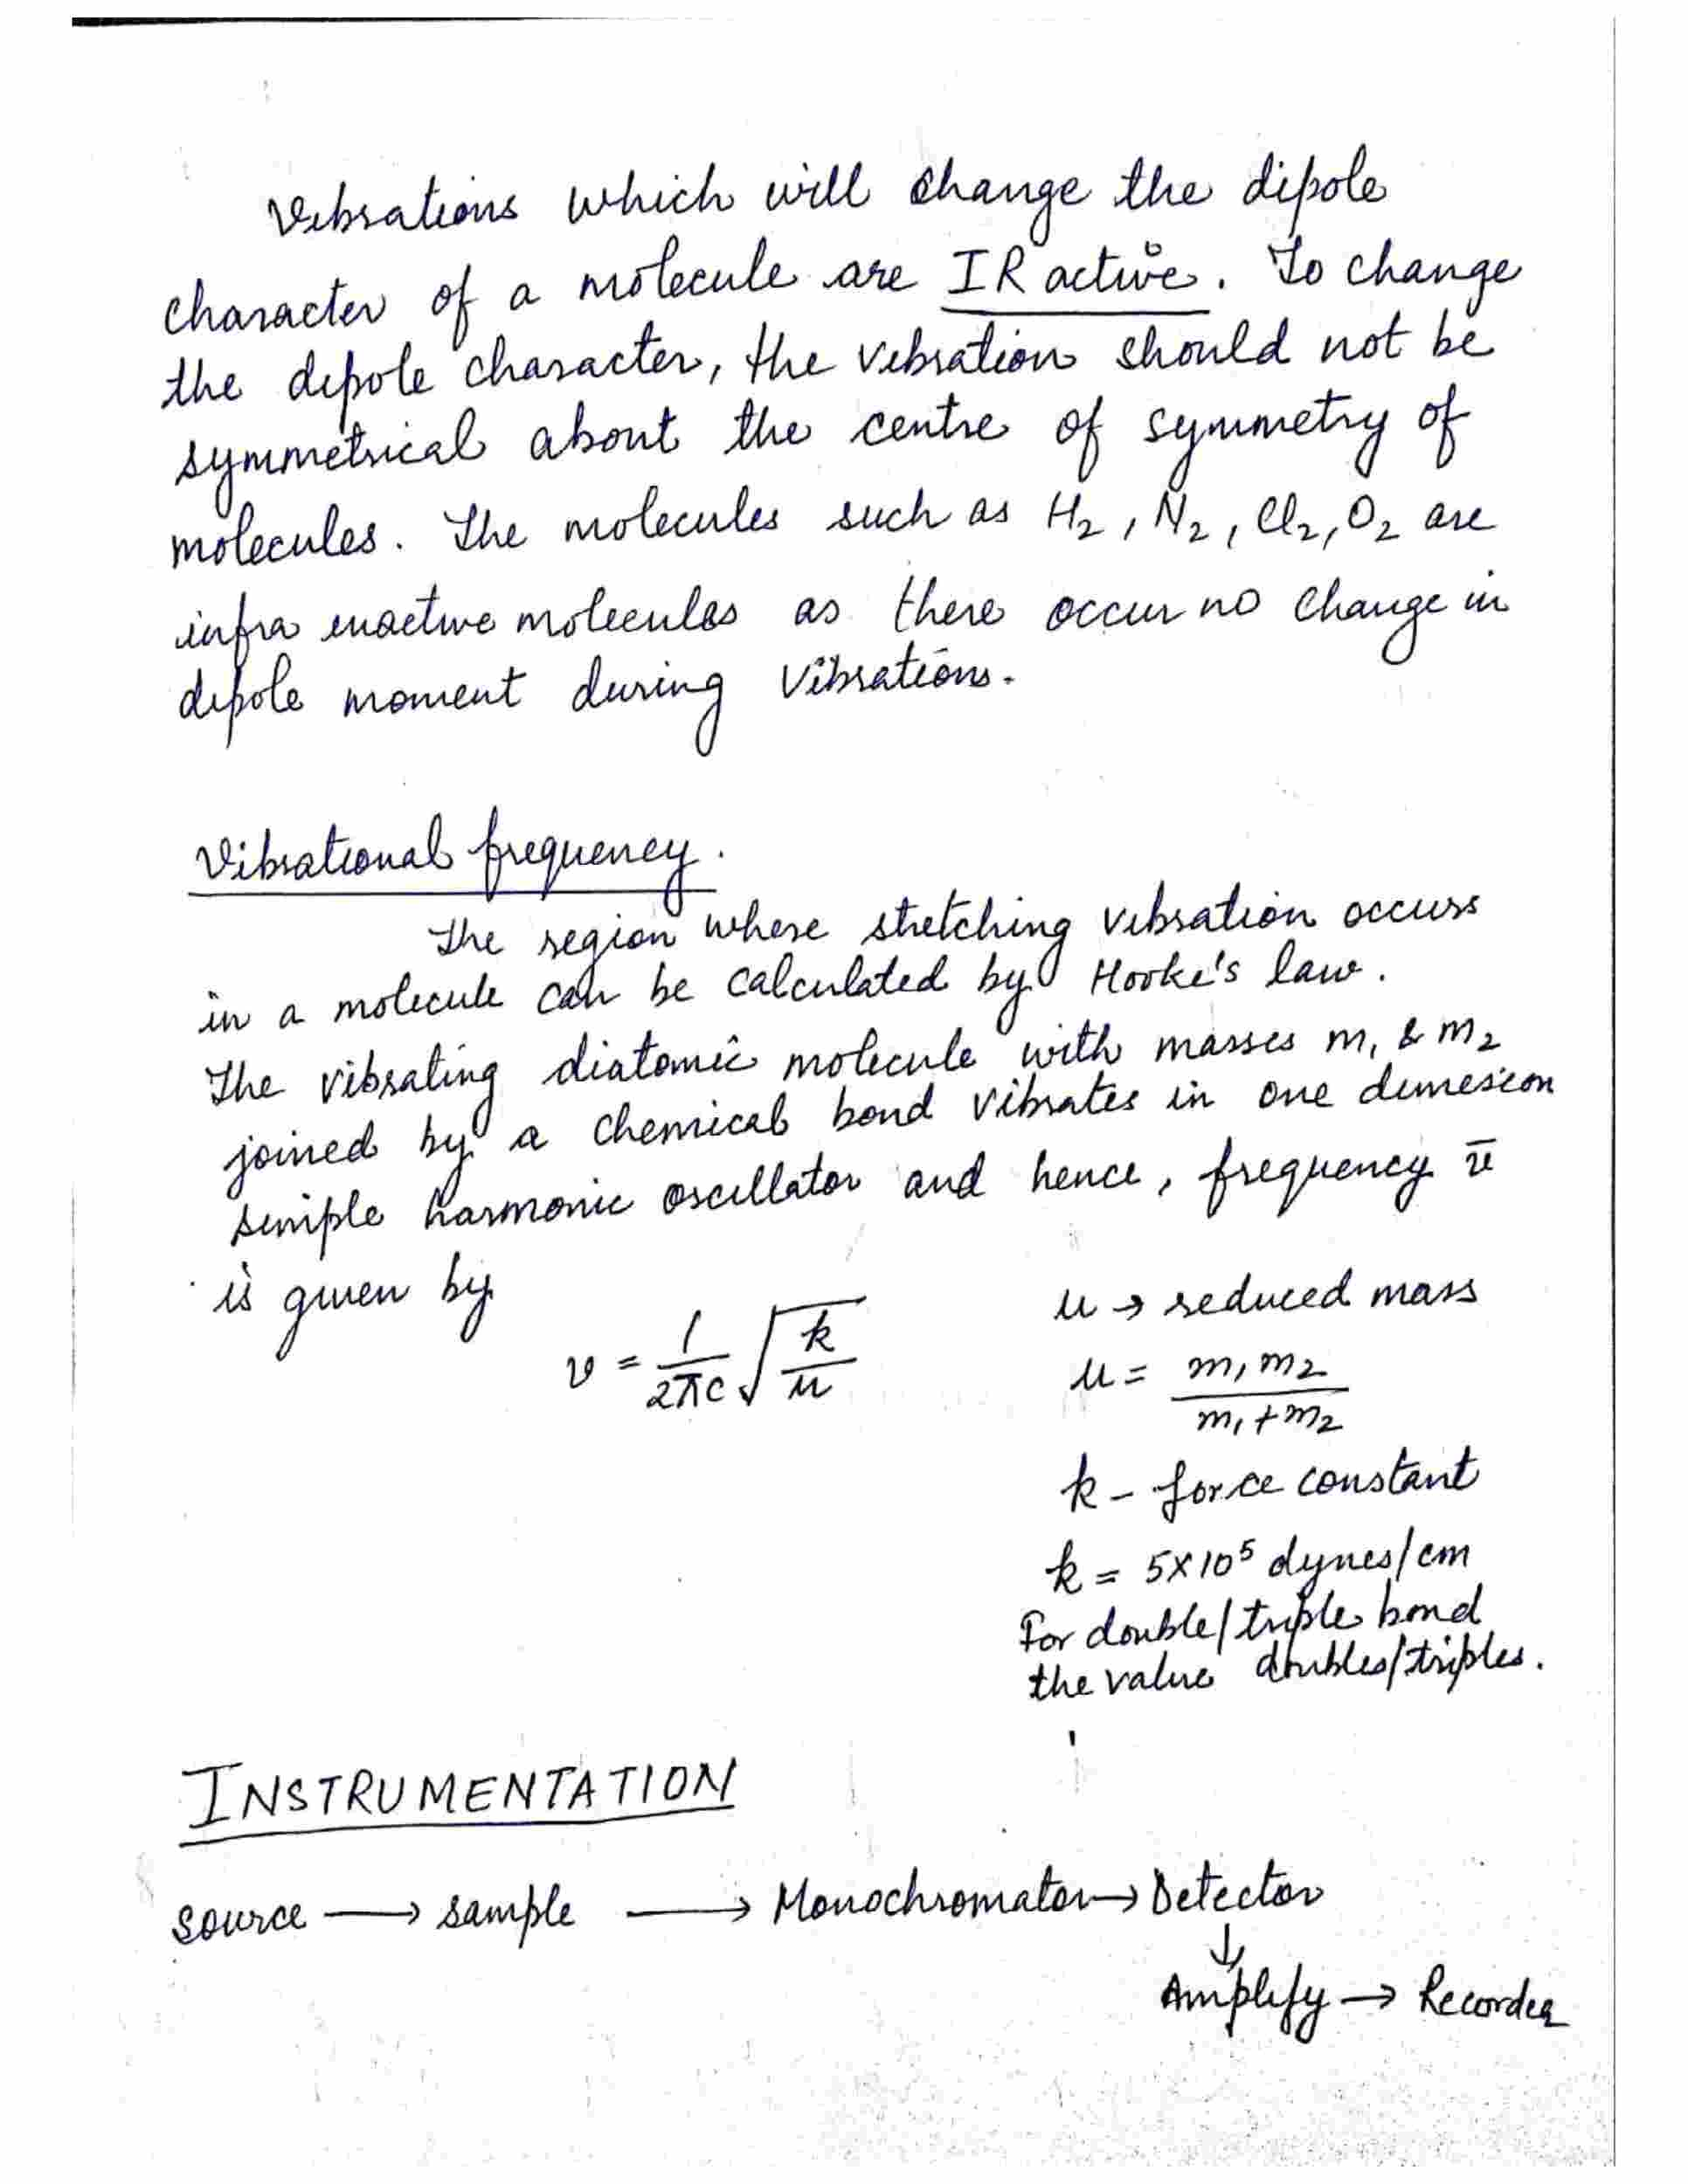 Vibrations which will change the dipole
character of a molecule are IR active. To change
the dipole character, the vibration should not be
symmetrical about the centre of symmetry of
molecules. The molecules such as H₂, N₂, Cl₂, O₂ are
infra inactive molecules as there occur no change in
dipole moment during vibrations.
Vibrational frequency.
The region where stretching vibration occurs
in a molecule can be calculated by Hooke's law.
The vibrating diatomic molecule with masses m₁ & m₂
joined by a chemical bond vibrates in one dimesion
simple harmonic oscillator and hence, frequency ν̄
is given by
ν = 1/2πc √k/μ
μ → reduced mass
μ = m₁m₂/m₁+m₂
k - force constant
k = 5×10⁵ dynes/cm
For double/triple bond
the value doubles/triples.
INSTRUMENTATION
Source → sample → Monochromator → Detector
↓
Amplify → Recorder